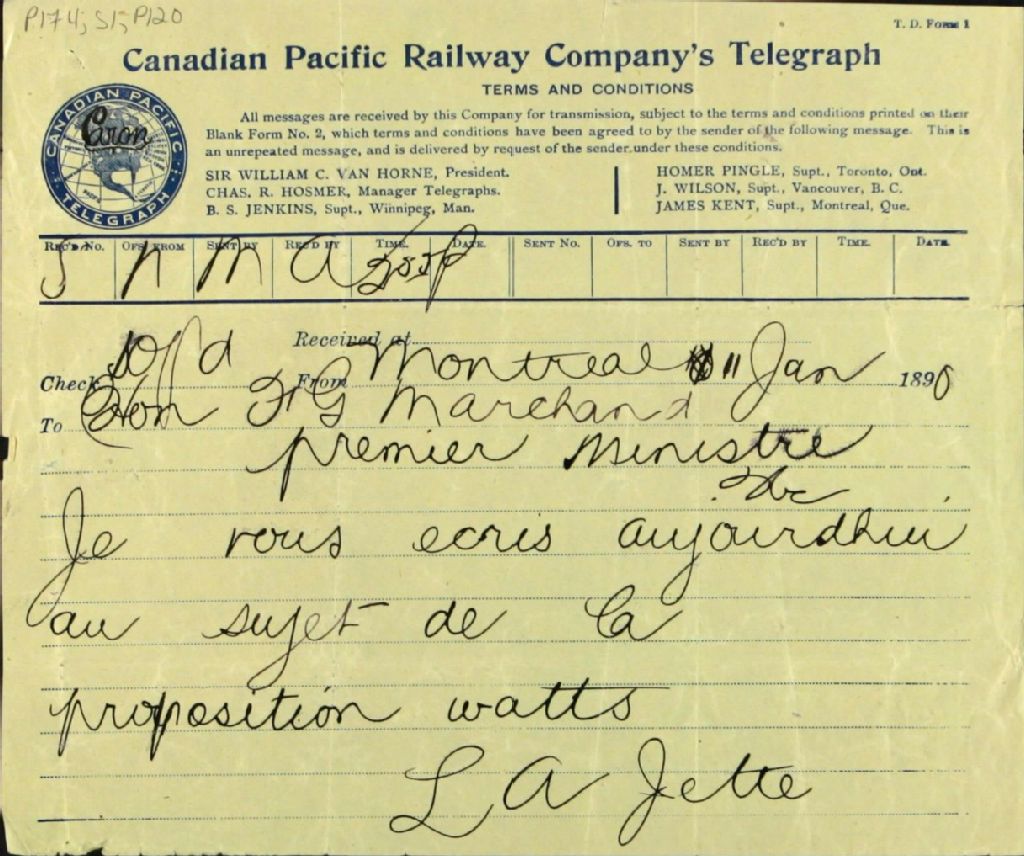 P174; S1; P120
T. D. Form 1
Canadian Pacific Railway Company's Telegraph
TERMS AND CONDITIONS
CANADIAN PACIFIC
TELEGRAPH
Caron
All messages are received by this Company for transmission, subject to the terms and conditions printed on their
Blank Form No. 2, which terms and conditions have been agreed to by the sender of the following message. This is
an unrepeated message, and is delivered by request of the sender under these conditions.
SIR WILLIAM C. VAN HORNE, President.
CHAS. R. HOSMER, Manager Telegraphs.
B. S. JENKINS, Supt., Winnipeg, Man.
HOMER PINGLE, Supt., Toronto, Ont.
J. WILSON, Supt., Vancouver, B. C.
JAMES KENT, Supt., Montreal, Que.
REC'D NO. OFS. FROM SENT BY REC'D BY TIME. DATE. SENT NO. OFS. TO SENT BY REC'D BY TIME. DATE.
N M A
Received at
Check
From Montreal 11 Jan 1898
To Hon F G Marchand
premier Ministre
Je vous ecris aujourdhui
au sujet de la
proposition watts
L A Jette